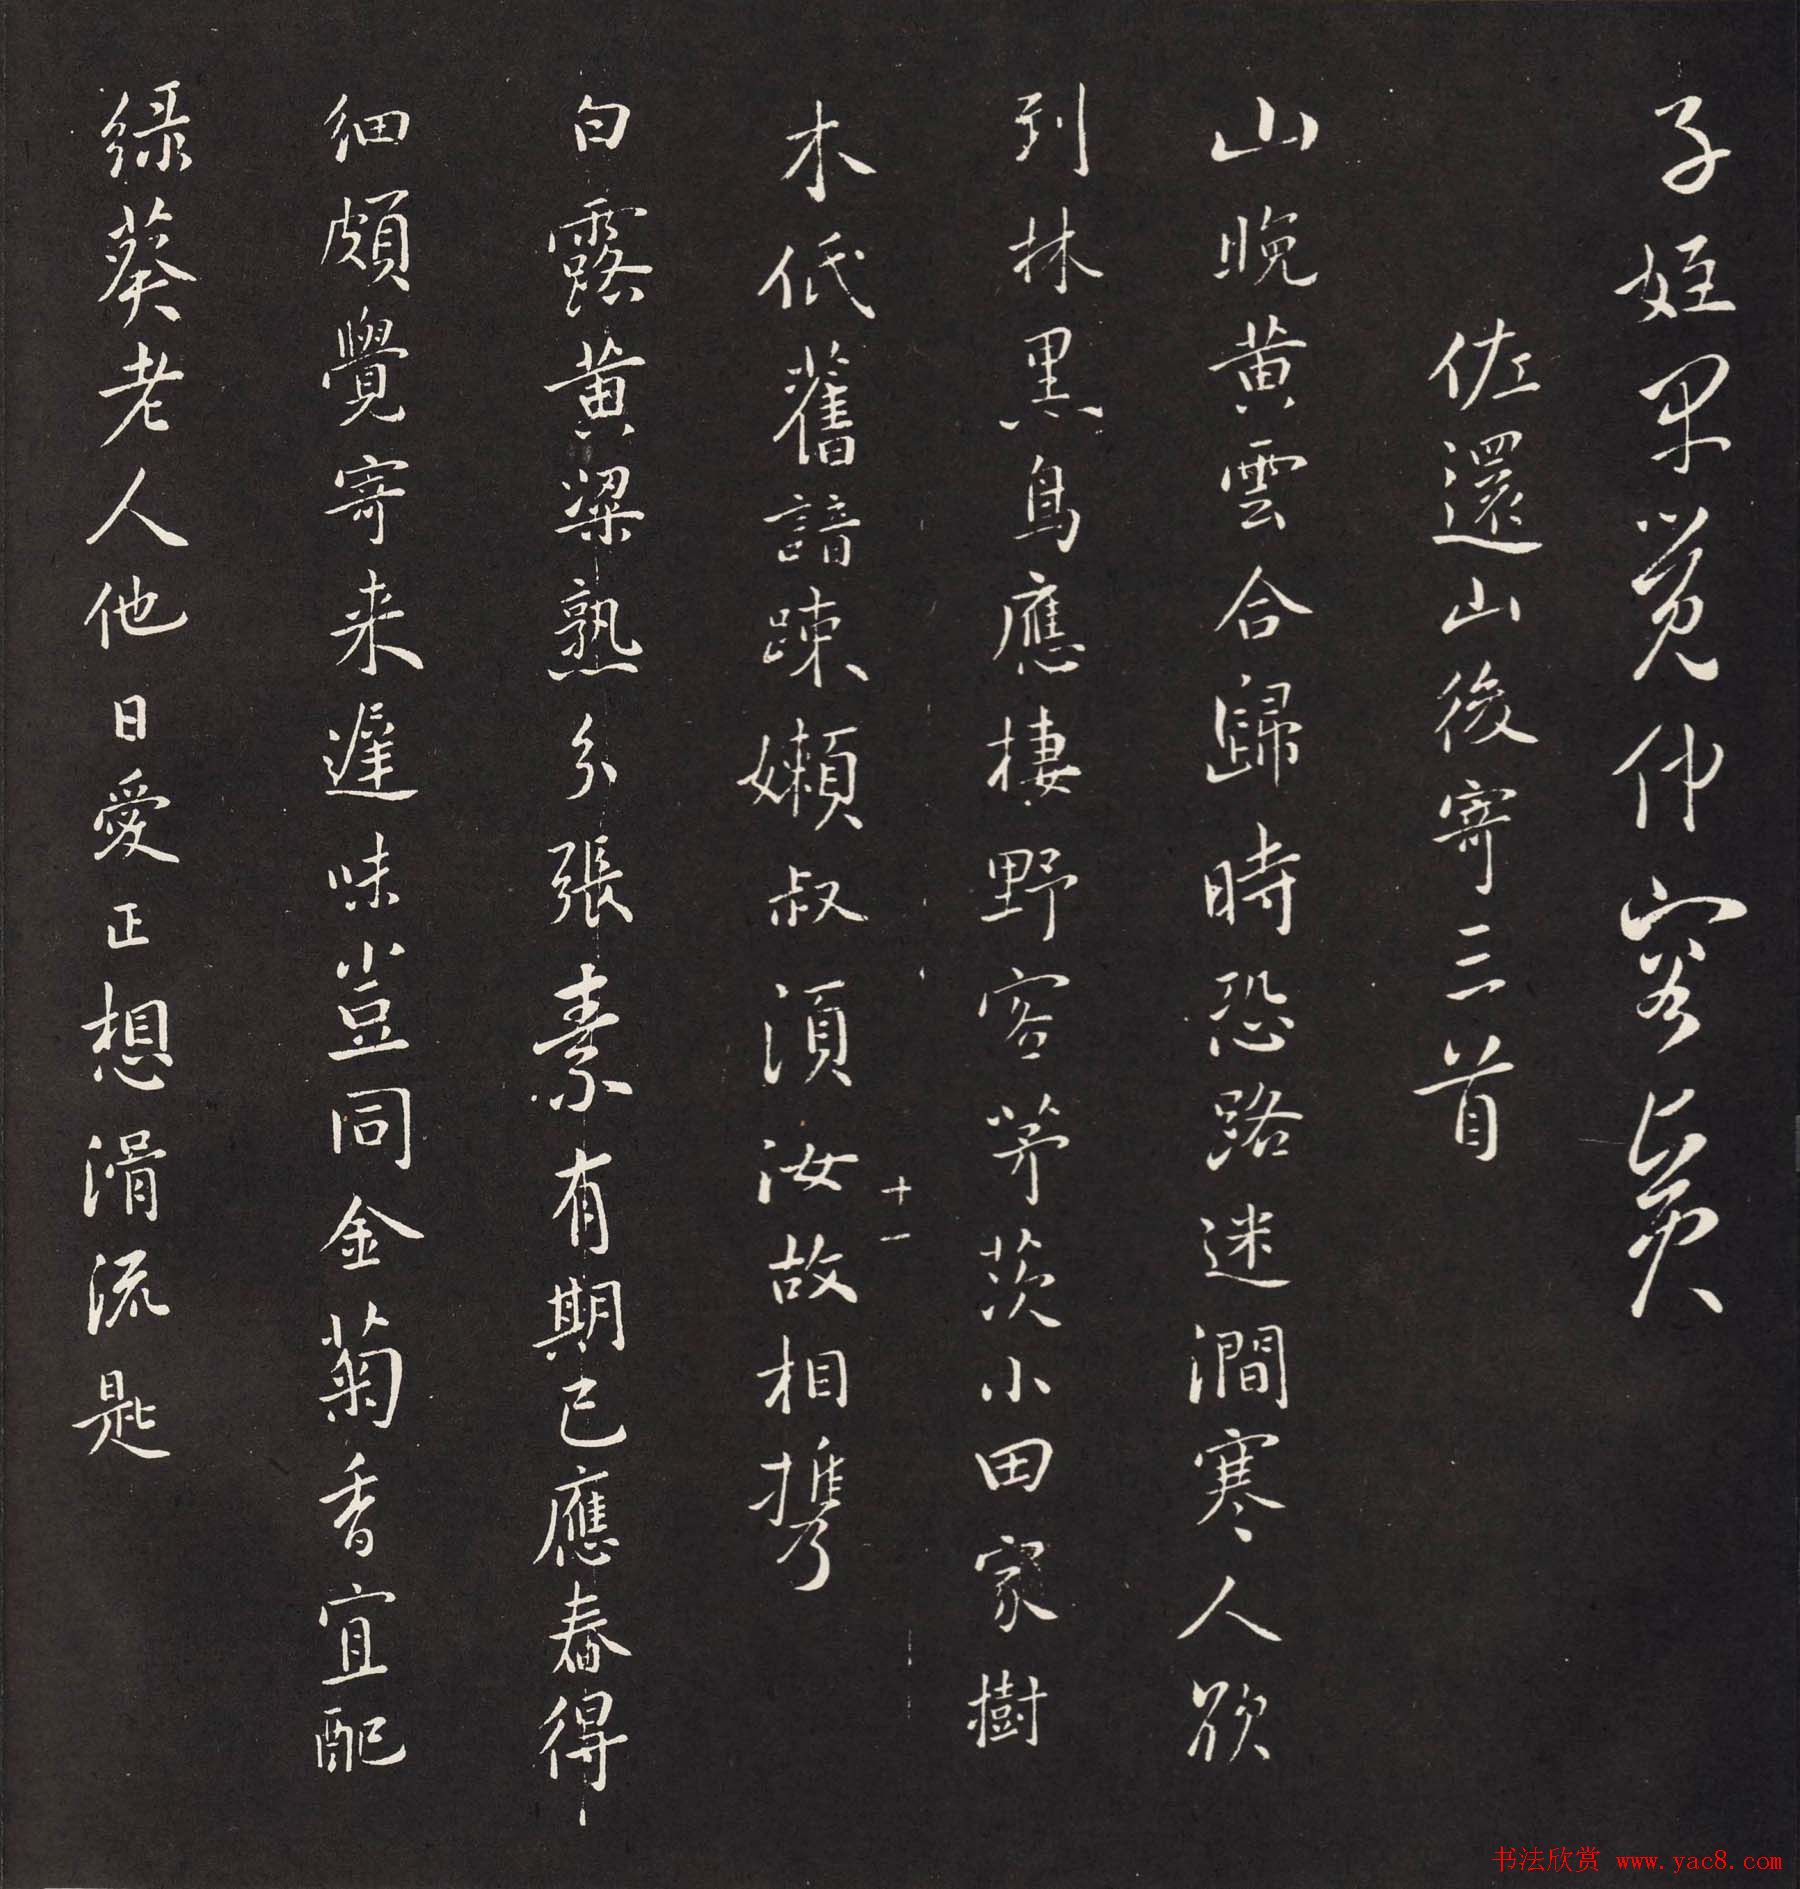 子姪早覺仲容賢
佐還山後寄三首
山晚黄雲合歸時恐路迷澗寒人欲
到林黑鳥應棲野客茅茨小田家樹
木低舊諳踈嬾叔須汝故相携
十一
白露黄粱熟分張素有期已應舂得
細頗覺寄来遲味豈同金菊香宜配
緑葵老人他日愛正想滑流匙
书法欣赏 www.yac8.com